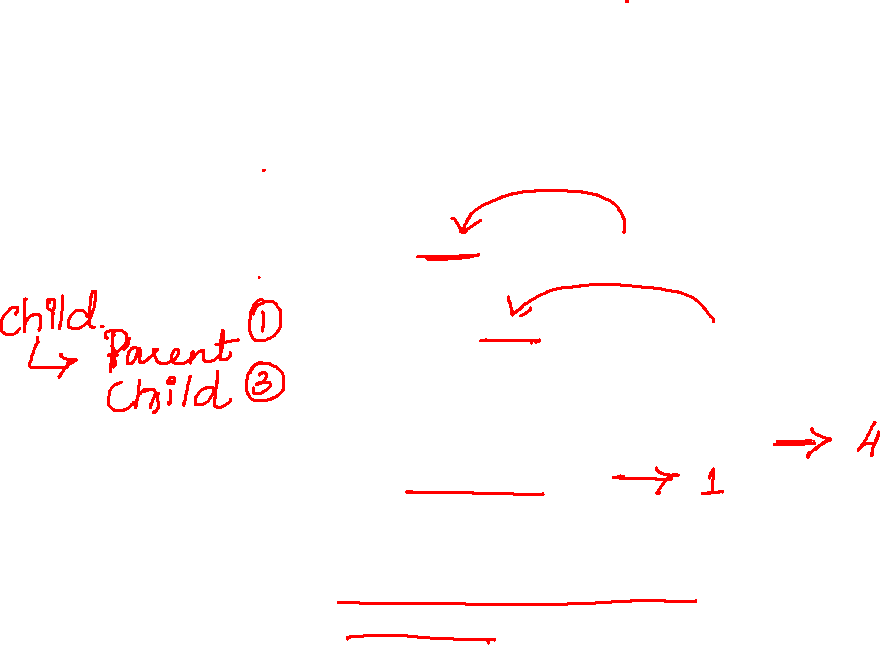 child.
↳ Parent ①
child ③
→ 4
→ 1